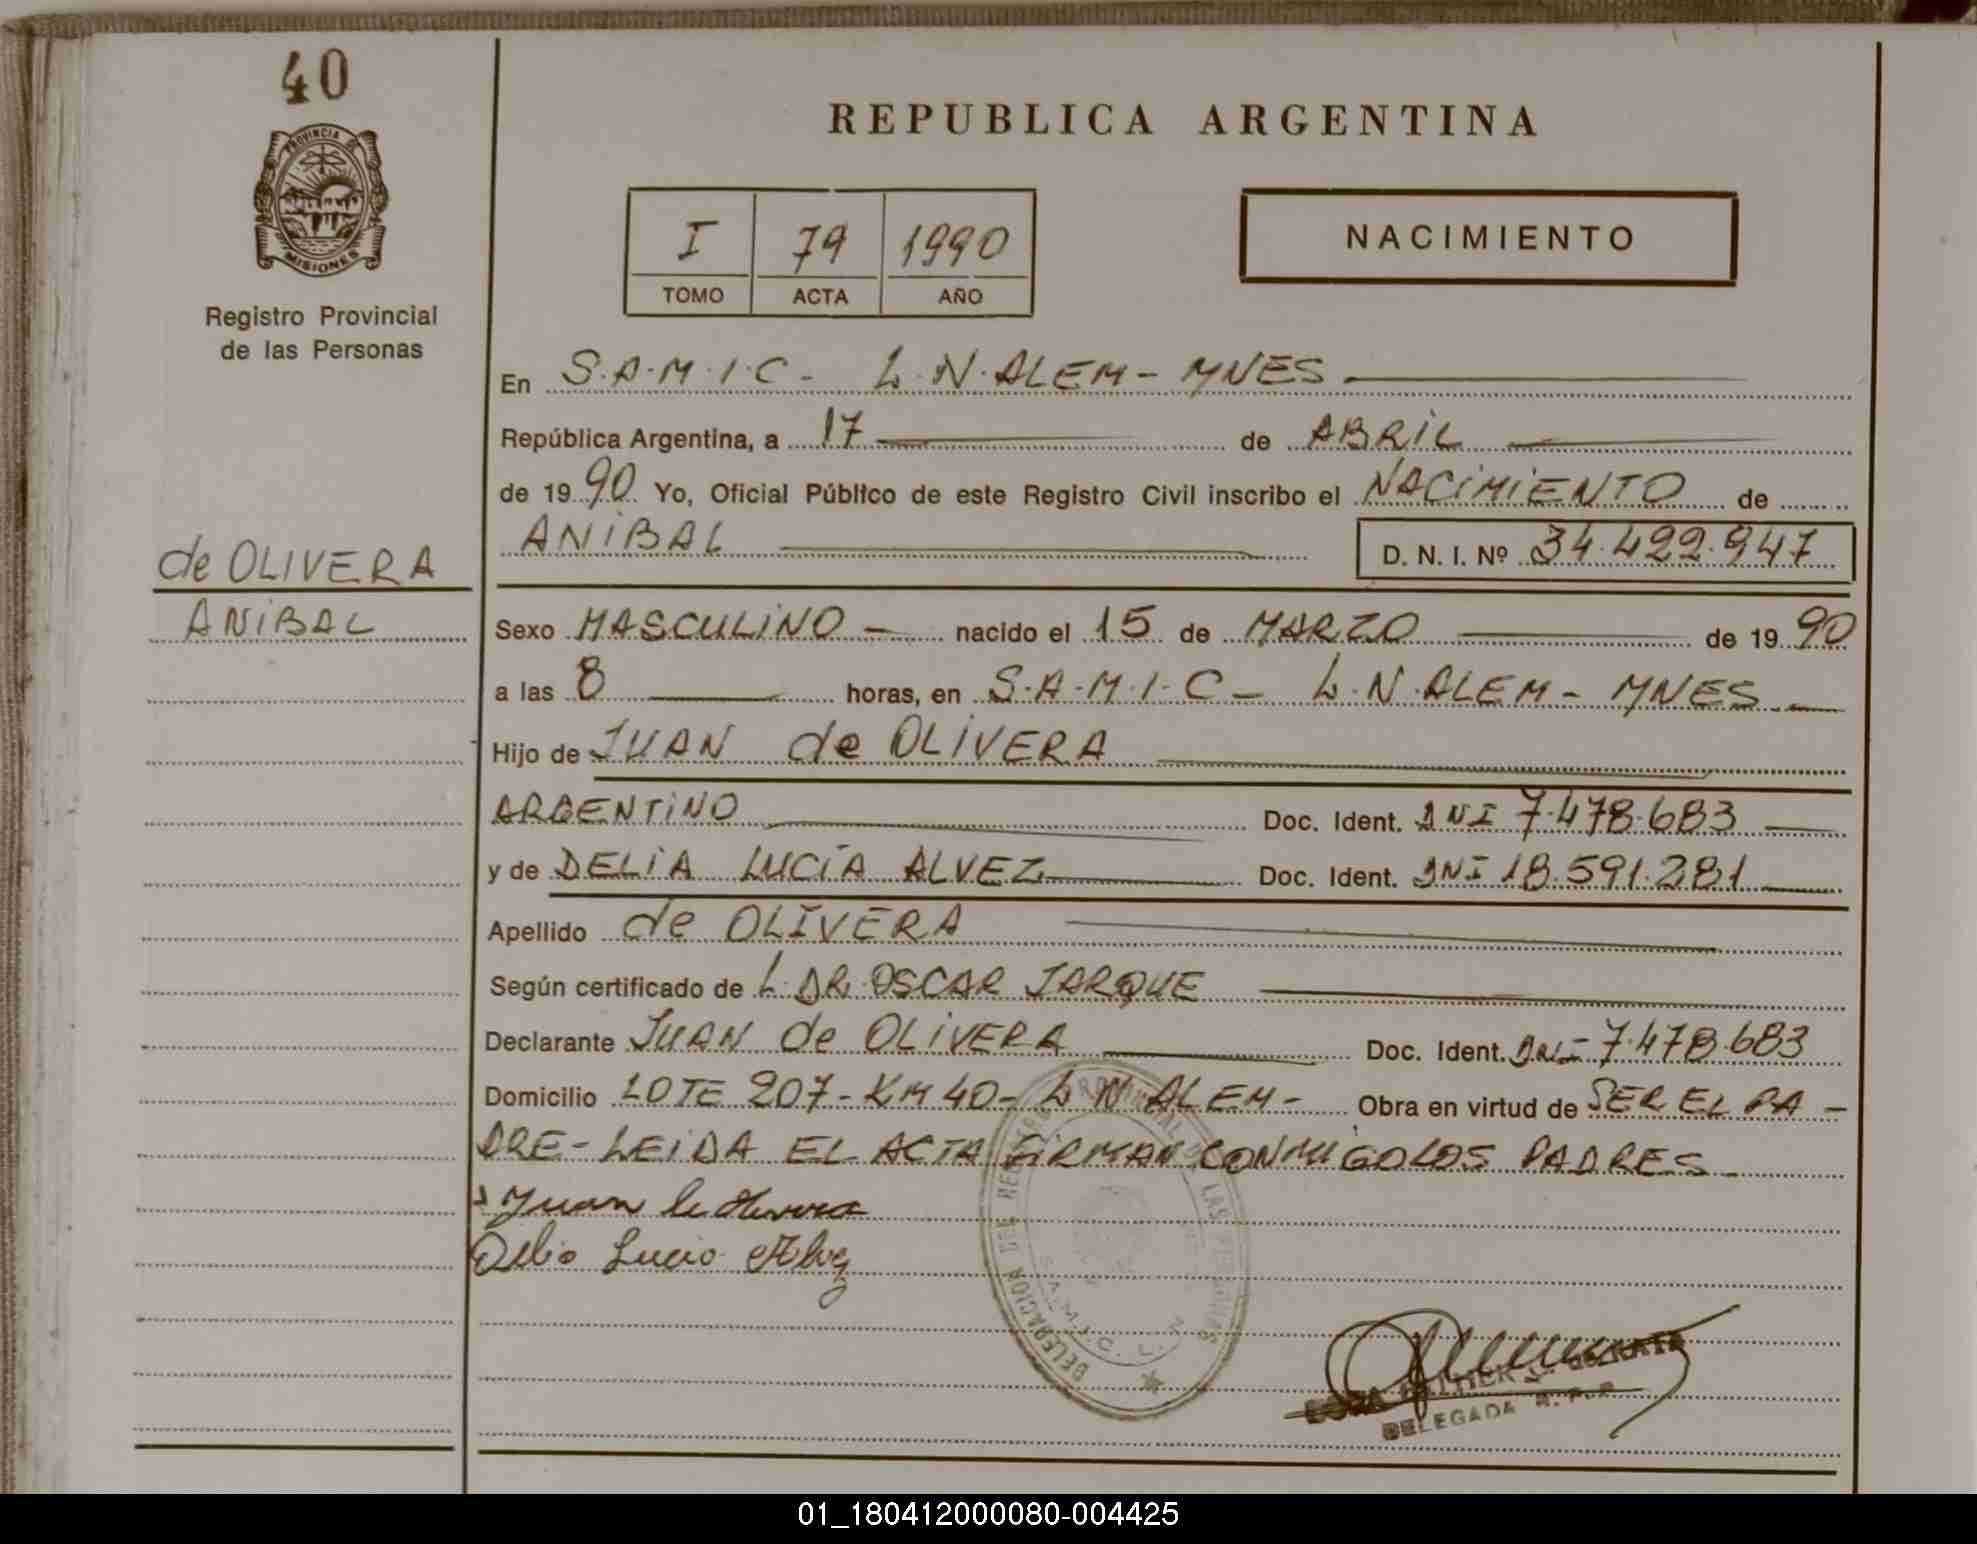 40
PROVINCIA DE
MISIONES
Registro Provincial
de las Personas
de OLIVERA
ANIBAL
REPUBLICA ARGENTINA
I 79 1990
TOMO ACTA AÑO
NACIMIENTO
En S.A.M.I.C - L.N.ALEM - MNES
República Argentina, a 17 de ABRIL
de 1990 Yo, Oficial Público de este Registro Civil inscribo el NACIMIENTO de
ANIBAL D. N. I. Nº 34.422.947
Sexo MASCULINO - nacido el 15 de MARZO de 1990
a las 8 horas, en S.A.M.I.C - L.N.ALEM - MNES
Hijo de JUAN de OLIVERA
ARGENTINO Doc. Ident. DNI 7.478.683
y de DELIA LUCÍA ALVEZ Doc. Ident. DNI 18.591.281
Apellido de OLIVERA
Según certificado de L. DR. OSCAR JARQUE
Declarante JUAN de OLIVERA Doc. Ident. DNI 7.478.683
Domicilio LOTE 207 - KM 40 - L N ALEM - Obra en virtud de SER EL PA -
DRE - LEIDA EL ACTA FIRMAN CONMIGO LOS PADRES
Juan de Olivera
Delia Lucia Alvez
S.A.M.I.C. L.N.
DELEGADA R. P. P.
01_180412000080-004425